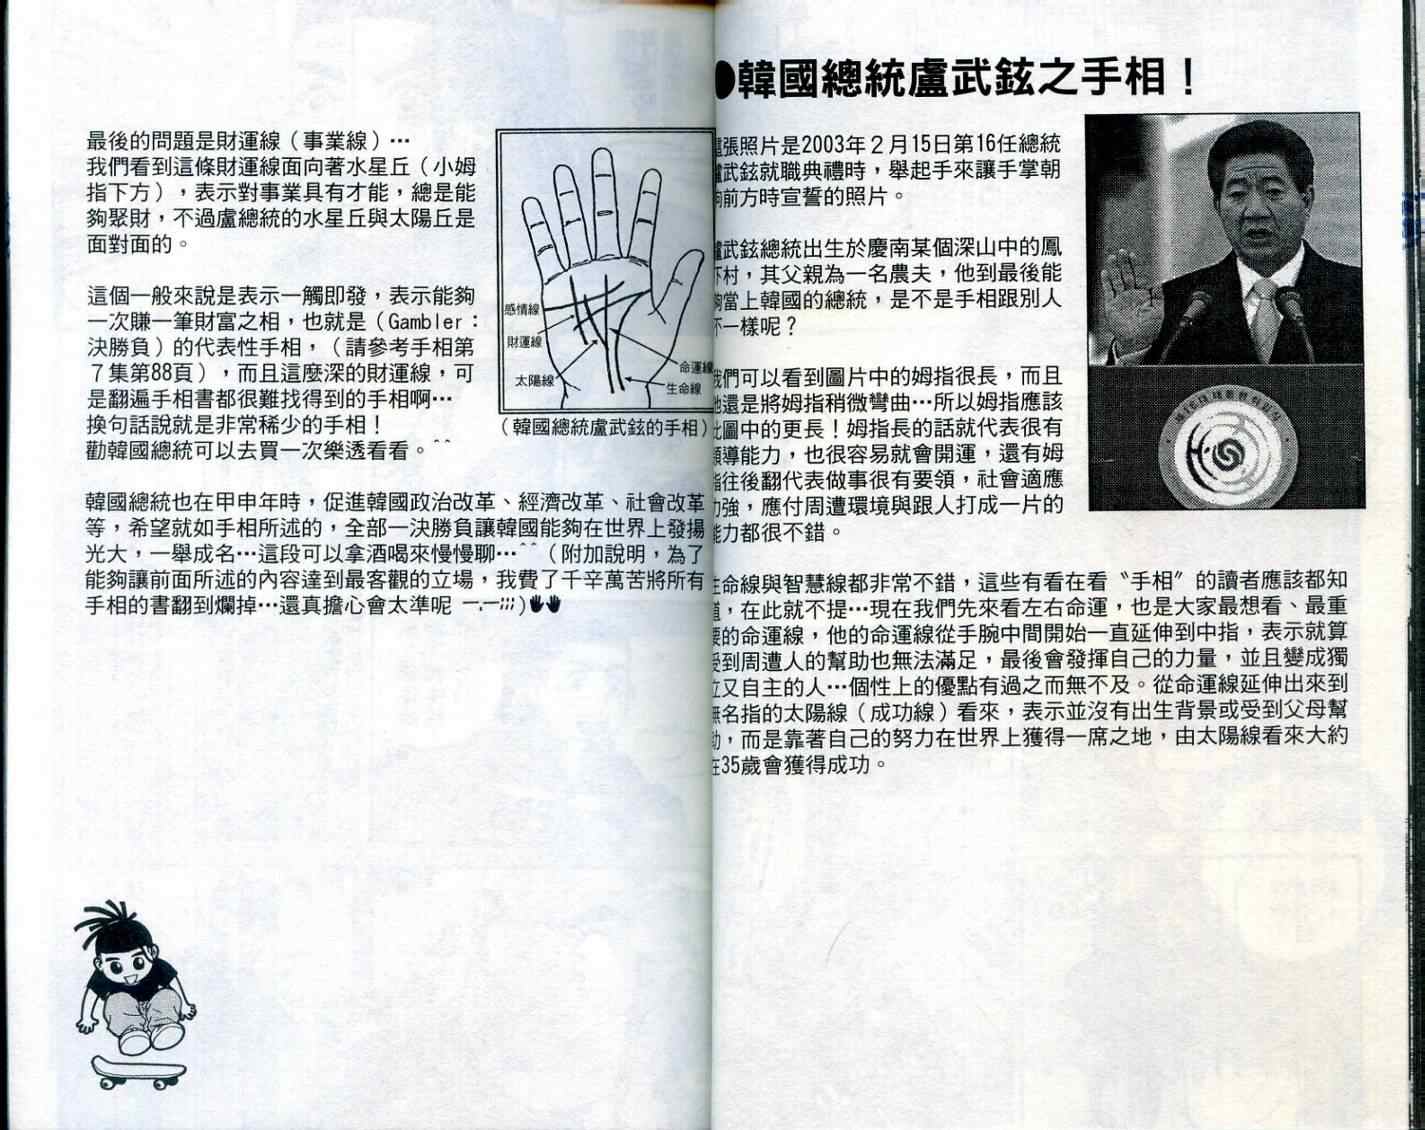 ●韓國總統盧武鉉之手相！
這張照片是2003年２月15日第16任總統
盧武鉉就職典禮時，舉起手來讓手掌朝
向前方時宣誓的照片。
盧武鉉總統出生於慶南某個深山中的鳳
下村，其父親為一名農夫，他到最後能
夠當上韓國的總統，是不是手相跟別人
不一樣呢？
我們可以看到圖片中的姆指很長，而且
他還是將姆指稍微彎曲…所以姆指應該
比圖中的更長！姆指長的話就代表很有
領導能力，也很容易就會開運，還有姆
指往後翻代表做事很有要領，社會適應
力強，應付周遭環境與跟人打成一片的
能力都很不錯。
生命線與智慧線都非常不錯，這些有看在看〝手相〞的讀者應該都知
道，在此就不提…現在我們先來看左右命運，也是大家最想看、最重
要的命運線，他的命運線從手腕中間開始一直延伸到中指，表示就算
受到周遭人的幫助也無法滿足，最後會發揮自己的力量，並且變成獨
立又自主的人…個性上的優點有過之而無不及。從命運線延伸出來到
無名指的太陽線（成功線）看來，表示並沒有出生背景或受到父母幫
助，而是靠著自己的努力在世界上獲得一席之地，由太陽線看來大約
在35歲會獲得成功。
제16대 대통령취임식
最後的問題是財運線（事業線）…
我們看到這條財運線面向著水星丘（小姆
指下方），表示對事業具有才能，總是能
夠聚財，不過盧總統的水星丘與太陽丘是
面對面的。
這個一般來說是表示一觸即發，表示能夠
一次賺一筆財富之相，也就是（Gambler：
決勝負）的代表性手相，（請參考手相第
７集第88頁），而且這麼深的財運線，可
是翻遍手相書都很難找得到的手相啊…
換句話說就是非常稀少的手相！
勸韓國總統可以去買一次樂透看看。^^
感情線
財運線
太陽線
命運線
生命線
（韓國總統盧武鉉的手相）
韓國總統也在甲申年時，促進韓國政治改革、經濟改革、社會改革
等，希望就如手相所述的，全部一決勝負讓韓國能夠在世界上發揚
光大，一舉成名…這段可以拿酒喝來慢慢聊…^^（附加說明，為了
能夠讓前面所述的內容達到最客觀的立場，我費了千辛萬苦將所有
手相的書翻到爛掉…還真擔心會太準呢 ㅡ.ㅡ;;;)